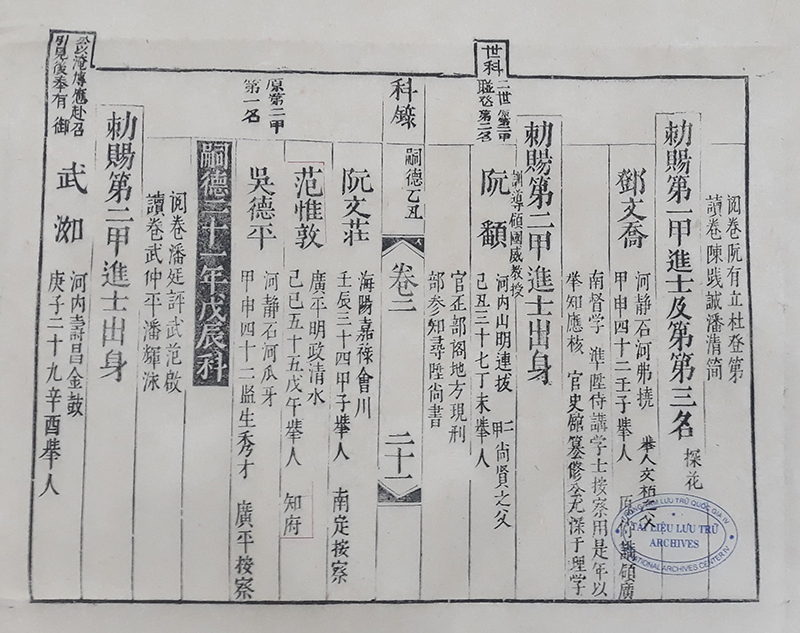 阅卷阮有立杜登第
讀卷陳践誠潘清简
勅賜第一甲進士及第第三名 探花
鄧文喬 河静石河弗撓 舉人文栢之父
甲申四十二壬子舉人 原 講領廣
南督学 準陞侍講学士按察用是年以
举知應核 官史館纂修公尤深于理学
世科
二世 第二甲
聯登第二名
勅賜第二甲進士出身
訓導領國威教授
阮 河内山明連拔 二甲尚賢之父
己丑三十七丁未舉人
官至部 地方現刑
部参知尋陞尚書
科錄 嗣德乙丑 卷三 二十一
阮文莊 海陽嘉祿會川
壬辰三十四甲子舉人 南定按察
范惟敦 廣平明政清水
己巳五十五戊午舉人 知府
原第二甲
第一名
吳德平 河静石河瓜牙
甲申四十二監生秀才 廣平按察
嗣德二十一年戊辰科
阅卷潘廷評武范啟
讀卷武仲平潘輝泳
勅賜第二甲進士出身
公以淹博應赴召
引見後奉有 御
武 河内壽昌金鼓
庚子二十九辛酉舉人
TRUNG TÂM LƯU TRỮ QUỐC GIA IV
TÀI LIỆU LƯU TRỮ
ARCHIVES
NATIONAL ARCHIVES CENTER IV